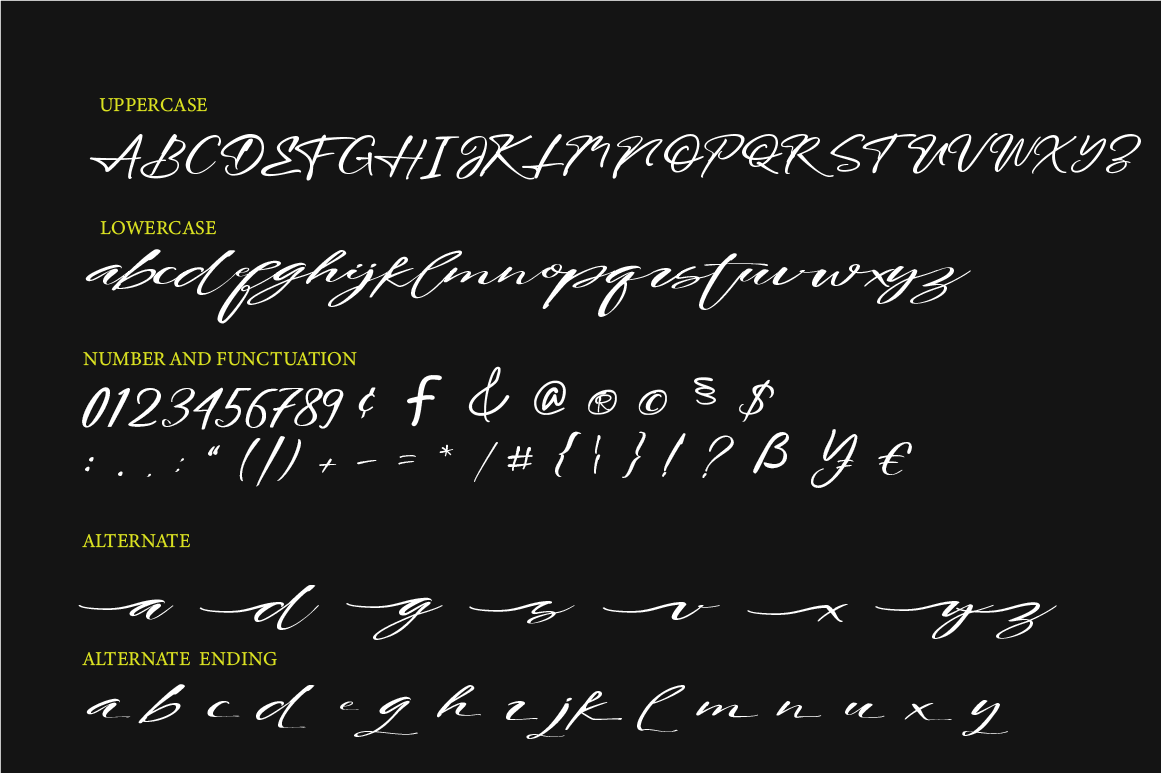 UPPERCASE
ABCDEFGHIJKLMNOPQRSTUVWXYZ
LOWERCASE
abcdefghijklmnopqrstuvwxyz
NUMBER AND FUNCTUATION
0123456789¢ f & @ ® © § $
: . , ; “ (/) + - = * / # { ¦ } ! ? ß ¥ €
ALTERNATE
a d g s v x y z
ALTERNATE ENDING
a b c d e g h r j k l m n u x y